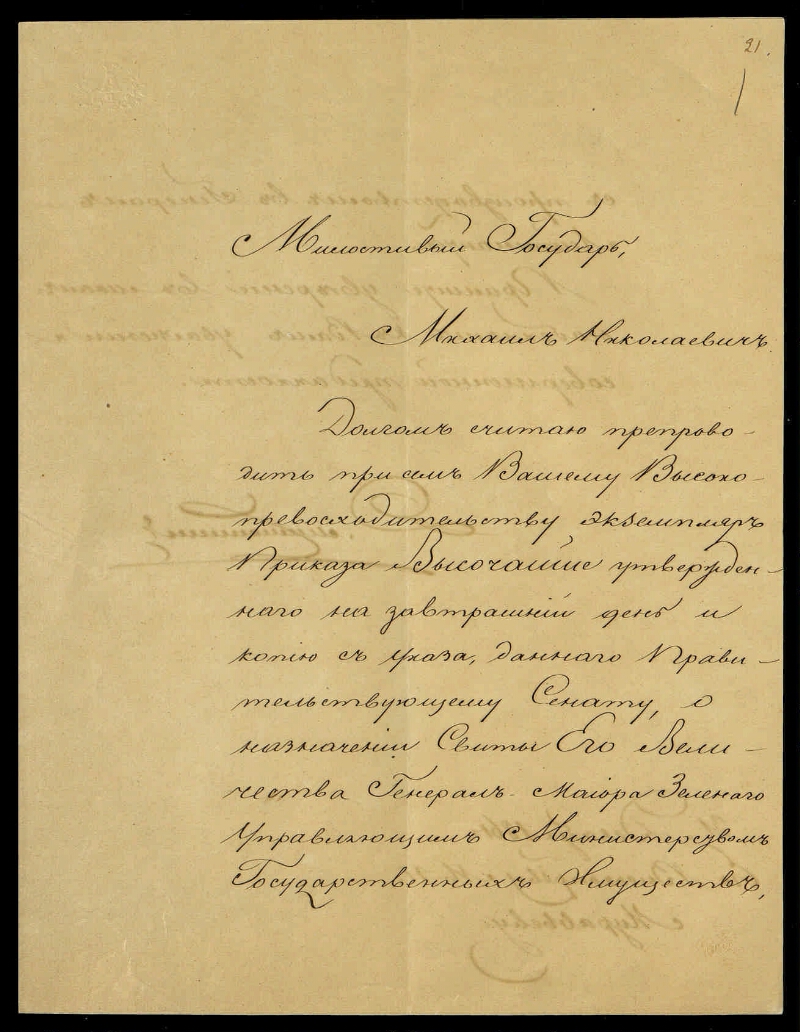 21.
Милостивый Государь,
Михаилъ Николаевичъ
Долгомъ считаю препрово-
дить при семъ Вашему Высоко-
превосходительству экземпляръ
Приказа Высочайше утвержден-
наго на завтрашній день и
копію съ указа, даннаго Прави-
тельствующему Сенату, о
назначеніи Свиты Его Вели-
чества Генералъ-Маіора Зеленаго
Управляющимъ Министерствомъ
Государственныхъ Имуществъ,